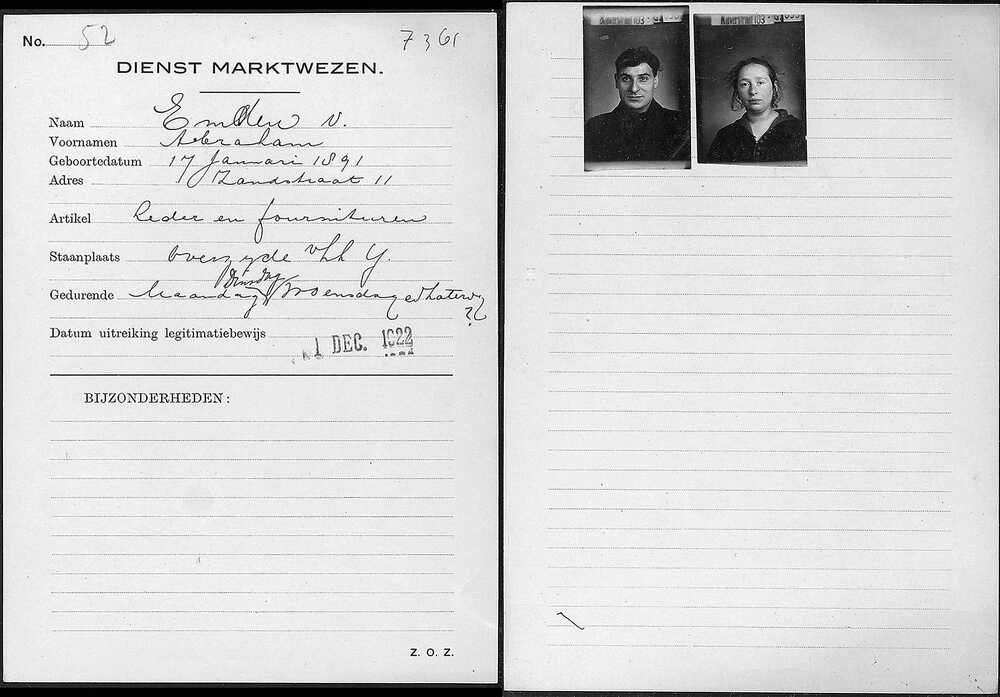 No. 52 7361
DIENST MARKTWEZEN.
Naam Emden v.
Voornamen Abraham
Geboortedatum 17 Januari 1891
Adres Zandstraat 11
Artikel Leder en fournituren
Staanplaats Overzyde vhh Y.
Dinsdag
Gedurende Maandag Woensdag
Datum uitreiking legitimatiebewijs
1 DEC. 1922
BIJZONDERHEDEN:
Z. O. Z.
103
103